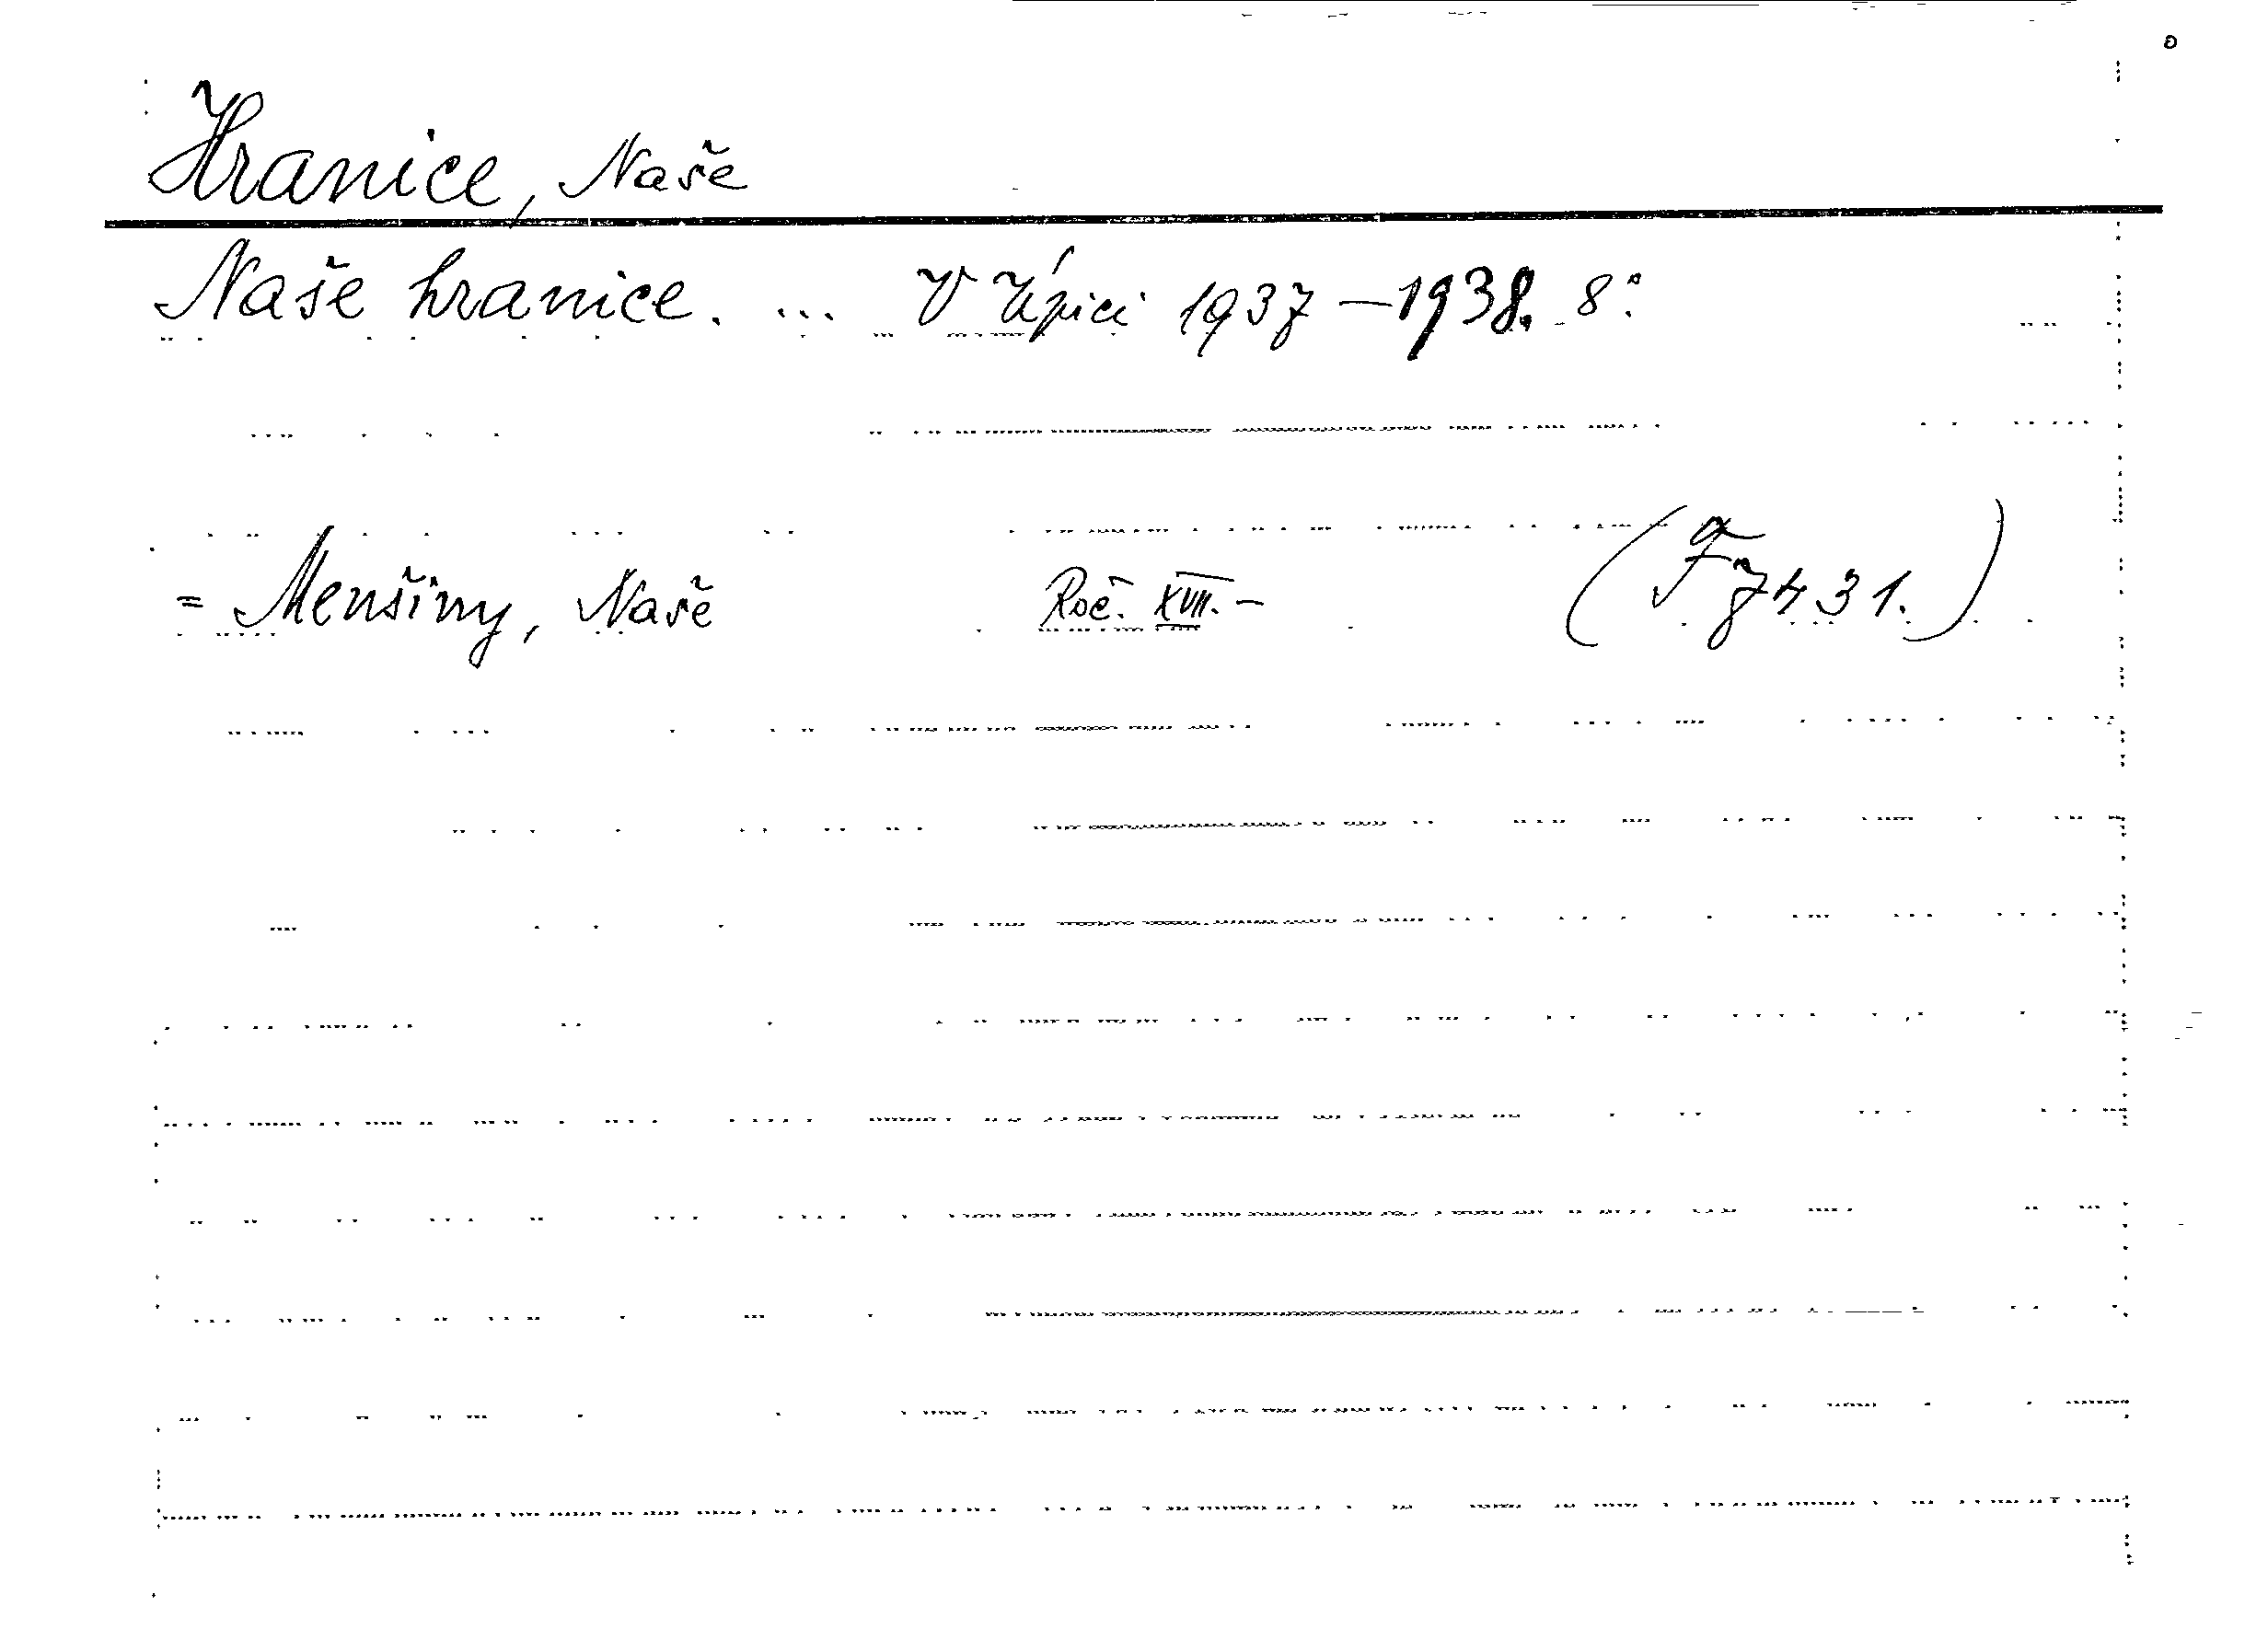 Hranice, Naše
Naše hranice. ... V Úpici 1937–1938. 8°.
= Menšiny, Naše Roč. XVII.– (F 7431.)